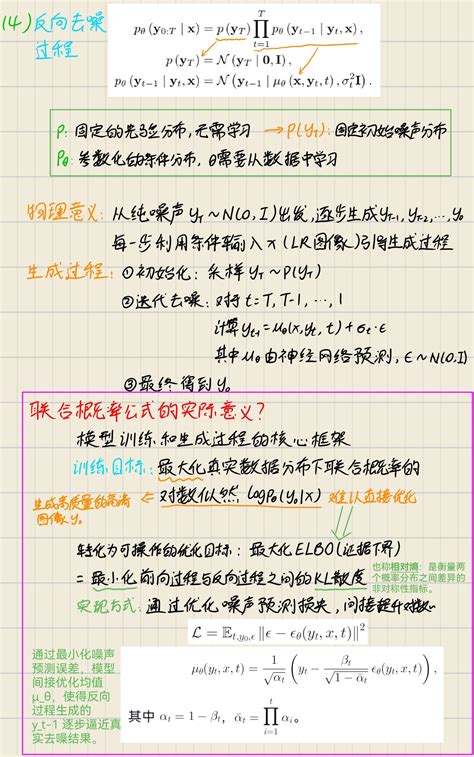 (4) 反向去噪过程
p_θ(y_{0:T} | x) = p(y_T) ∏_{t=1}^{T} p_θ(y_{t−1} | y_t, x),
p(y_T) = N(y_T | 0, I),
p_θ(y_{t−1} | y_t, x) = N(y_{t−1} | μ_θ(x, y_t, t), σ_t^2 I).
P: 固定的先验分布，无需学习 → P(y_T): 固定初始噪声分布
P_θ: 参数化的条件分布，θ需要从数据中学习
物理意义: 从纯噪声 y_T ~ N(0, I) 出发，逐步生成 y_{T-1}, y_{T-2}, ..., y_0
每一步利用条件输入 x (LR图像) 引导生成过程
生成过程: ①初始化: 采样 y_T ~ P(y_T)
②迭代去噪: 对 t = T, T-1, ..., 1
计算 y_{t-1} = μ_θ(x, y_t, t) + σ_t·ε
其中 μ_θ 由神经网络预测, ε ~ N(0, I)
③最终得到 y_0
联合概率公式的实际意义?
模型训练和生成过程的核心框架
训练目标: 最大化真实数据分布下联合概率的
对数似然 log P_θ(y_0|x) 难以直接优化
生成高质量的高清图像 y_0 ⇐
转化为可操作的优化目标: 最大化 ELBO (证据下界)
= 最小化前向过程与反向过程之间的 KL散度
也称相对熵：是衡量两
个概率分布之间差异的
非对称性指标。
实现方式: 通过优化噪声预测损失, 间接提升对数
L = E_{t,y_0,ε} ‖ε − ε_θ(y_t, x, t)‖^2
通过最小化噪声
预测误差，模型
间接优化均值
μ_θ，使得反向
过程生成的
y_t-1 逐步逼近真
实去噪结果。
μ_θ(y_t, x, t) = 1/√α_t ( y_t − β_t/√(1 − ᾱ_t) ε_θ(y_t, x, t) ),
其中 α_t = 1 − β_t，ᾱ_t = ∏_{i=1}^{t} α_i。